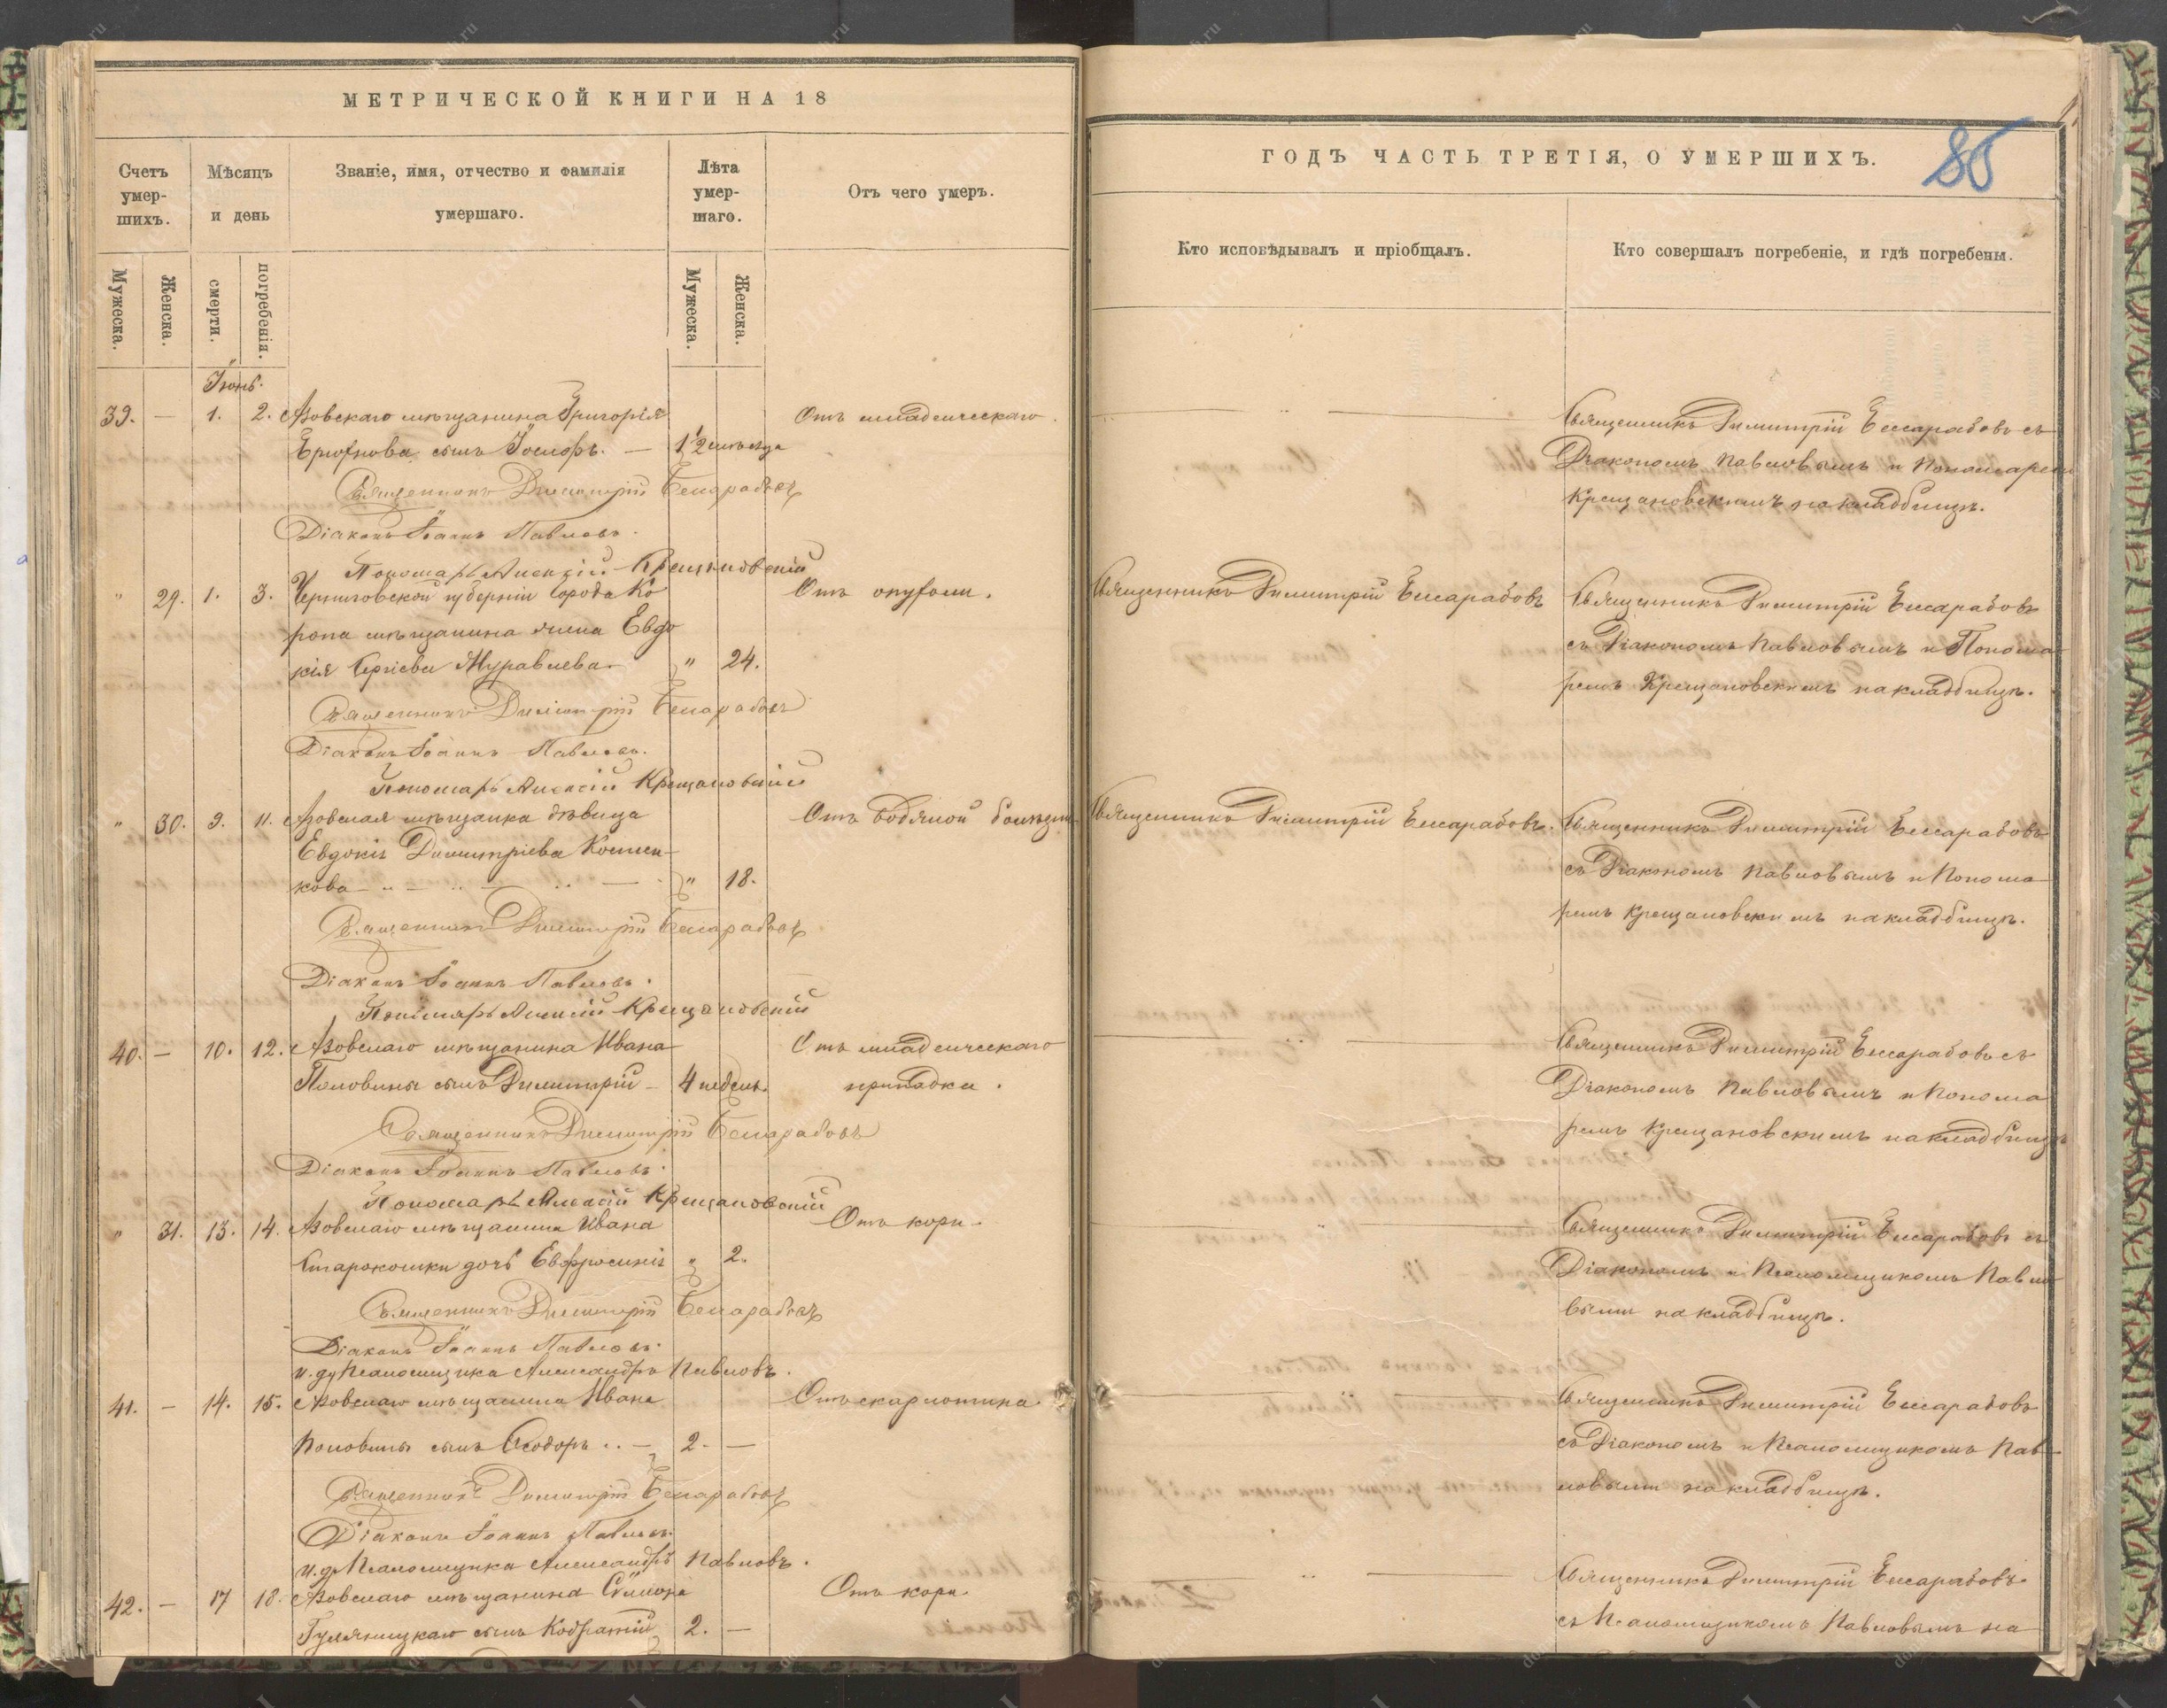 МЕТРИЧЕСКОЙ КНИГИ НА 18
Счетъ умер-шихъ.
Мѣсяцъ и день
Званіе, имя, отчество и фамилія умершаго.
Лѣта умер-шаго.
Отъ чего умеръ.
Мужеска.
Женска.
смерти.
погребенія.
Мужеска.
Женска.
Іюнь.
39. — 1. 2. Азовскаго мѣщанина Григорія Отъ младенческаго
сынъ Іосифъ. — 1 1/2 мѣсяца
Священникъ Димитрій Бессарабовъ
Діаконъ Іоаннъ Павловъ.
Пономарь Алексій Крещановскій
" 29. 1. 3. Черниговской губерніи города Ко Отъ опухоли.
ропа мѣщанина жена Евдо
кія Сергіева Муравлева " 24.
Священникъ Димитрій Бессарабовъ
Діаконъ Іоаннъ Павловъ.
Пономарь Алексій Крещановскій
" 30. 9. 11. Азовская мѣщанка дѣвица Отъ водяной болѣзни
Евдокія Димитріева
кова " 18.
Священникъ Димитрій Бессарабовъ
Діаконъ Іоаннъ Павловъ.
Пономарь Алексій Крещановскій
40. — 10. 12. Азовскаго мѣщанина Ивана Отъ младенческаго
Половины сынъ Димитрій — 4 недѣль. припадка.
Священникъ Димитрій Бессарабовъ
Діаконъ Іоаннъ Павловъ.
Пономарь Алексій Крещановскій
" 31. 13. 14. Азовскаго мѣщанина Ивана Отъ кори.
Старокошки дочь Евфросинія " 2.
Священникъ Димитрій Бессарабовъ
Діаконъ Іоаннъ Павловъ.
и. д. Псаломщика Александръ Павловъ.
41. — 14. 15. Азовскаго мѣщанина Ивана Отъ скарлотина
Половины сынъ Ѳеодоръ 2. —
Священникъ Димитрій Бессарабовъ
Діаконъ Іоаннъ Павловъ.
и. д. Псаломщика Александръ Павловъ.
42. — 17 18. Азовскаго мѣщанина Отъ кори.
сынъ Кодратій 2. —
ГОДЪ ЧАСТЬ ТРЕТІЯ, О УМЕРШИХЪ.
85
Кто исповѣдывалъ и пріобщалъ.
Кто совершалъ погребеніе, и гдѣ погребены.
Священникъ Димитрій Бессарабовъ съ
Діакономъ Павловымъ и Пономарем
Крещановскимъ на кладбищѣ.
Священникъ Димитрій Бессарабовъ Священникъ Димитрій Бессарабовъ
съ Діакономъ Павловымъ и Понома
ремъ Крещановскимъ на кладбищѣ.
Священникъ Димитрій Бессарабовъ. Священникъ Димитрій Бессарабовъ
съ Діакономъ Павловымъ и Понома
ремъ Крещановскимъ на кладбищѣ.
Священникъ Димитрій Бессарабовъ съ
Діакономъ Павловымъ и Понома
ремъ Крещановскимъ на кладбищѣ
Священникъ Димитрій Бессарабовъ съ
Діакономъ и Псаломщикомъ Павло
выми на кладбищѣ.
Священникъ Димитрій Бессарабовъ
съ Діакономъ и Псаломщикомъ Пав
ловыми на кладбищѣ.
Священникъ Димитрій Бессарабовъ
съ Псаломщикомъ Павловымъ на